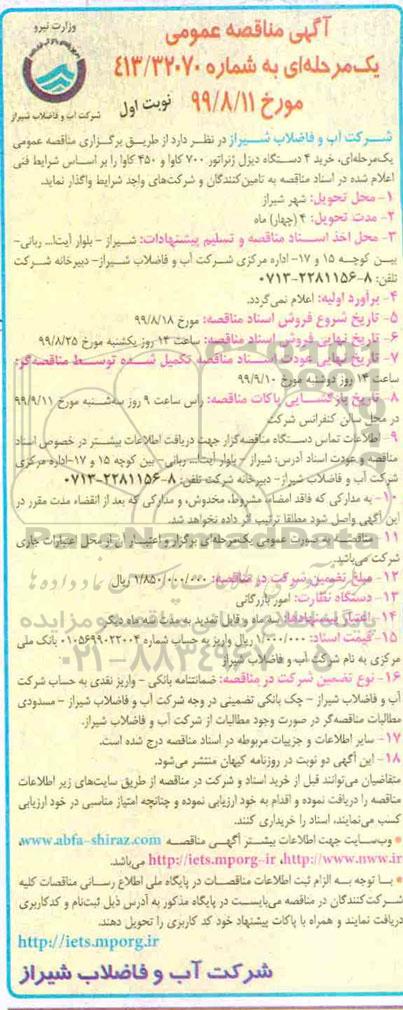 آگهی مناقصه عمومی
وزارت نیرو
یک‌مرحله‌ای به شماره ۴۱۳/۳۲۰۷۰
مورخ ۹۹/۸/۱۱
نوبت اول
شرکت آب و فاضلاب شیراز
شرکت آب و فاضلاب شیراز در نظر دارد از طریق برگزاری مناقصه عمومی
یک‌مرحله‌ای، خرید ۴ دستگاه دیزل ژنراتور ۷۰۰ کاوا و ۴۵۰ کاوا را بر اساس شرایط فنی
اعلام شده در اسناد مناقصه به تامین‌کنندگان و شرکت‌های واجد شرایط واگذار نماید.
۱- محل تحویل: شهر شیراز
۲- مدت تحویل: ۴ (چهار) ماه
۳- محل اخذ اسناد مناقصه و تسلیم پیشنهادات: شیراز - بلوار آیت‌ا... ربانی-
بین کوچه ۱۵ و ۱۷- اداره مرکزی شرکت آب و فاضلاب شیراز- دبیرخانه شرکت
تلفن: ۸-۰۷۱۳-۲۲۸۱۱۵۶
۴- برآورد اولیه: اعلام نمی‌گردد.
۵- تاریخ شروع فروش اسناد مناقصه: مورخ ۹۹/۸/۱۸
۶- تاریخ نهایی فروش اسناد مناقصه: ساعت ۱۴ روز یکشنبه مورخ ۹۹/۸/۲۵
۷- تاریخ نهایی عودت اسناد مناقصه تکمیل شده توسط مناقصه‌گر:
ساعت ۱۴ روز دوشنبه مورخ ۹۹/۹/۱۰
۸- تاریخ بازگشایی پاکات مناقصه: راس ساعت ۹ روز سه‌شنبه مورخ ۹۹/۹/۱۱
در محل سالن کنفرانس شرکت
۹- اطلاعات تماس دستگاه مناقصه‌گزار جهت دریافت اطلاعات بیشتر در خصوص اسناد
مناقصه و عودت اسناد آدرس: شیراز - بلوار آیت‌ا... ربانی- بین کوچه ۱۵ و ۱۷-اداره مرکزی
شرکت آب و فاضلاب شیراز- دبیرخانه شرکت تلفن: ۸-۰۷۱۳-۲۲۸۱۱۵۶
۱۰- به مدارکی که فاقد امضاء، مشروط، مخدوش، و مدارکی که بعد از انقضاء مدت مقرر در
این آگهی واصل شود مطلقا ترتیب اثر داده نخواهد شد.
۱۱- مناقصه به صورت عمومی یک‌مرحله‌ای برگزار و اعتبار آن از محل اعتبارات جاری
شرکت می‌باشد.
۱۲- مبلغ تضمین شرکت در مناقصه: ۱/۸۵۰/۰۰۰/۰۰۰ ریال
۱۳- دستگاه نظارت: امور بازرگانی
۱۴- اعتبار پیشنهادها: سه ماه و قابل تمدید به مدت سه ماه دیگر
۱۵- قیمت اسناد: ۱/۰۰۰/۰۰۰ ریال واریز به حساب شماره ۰۱۰۵۶۹۹۰۲۲۰۰۴ بانک ملی
مرکزی به نام شرکت آب و فاضلاب شیراز
۱۶- نوع تضمین شرکت در مناقصه: ضمانتنامه بانکی - واریز نقدی به حساب شرکت
آب و فاضلاب شیراز - چک بانکی تضمینی در وجه شرکت آب و فاضلاب شیراز - مسدودی
مطالبات مناقصه‌گر در صورت وجود مطالبات از شرکت آب و فاضلاب شیراز.
۱۷- سایر اطلاعات و جزییات مربوطه در اسناد مناقصه درج شده است.
۱۸- این آگهی دو نوبت در روزنامه کیهان منتشر می‌شود.
متقاضیان می‌توانند قبل از خرید اسناد و شرکت در مناقصه از طریق سایت‌های زیر اطلاعات
مناقصه را دریافت نموده و اقدام به خود ارزیابی نموده و چنانچه امتیاز مناسبی در خود ارزیابی
کسب می‌نمایند، اسناد را خریداری کنند.
• وب‌سایت جهت اطلاعات بیشتر آگهی مناقصه www.abfa-shiraz.com
http://iets.mporg-ir ،http://www.nww.ir می‌باشد.
• با توجه به الزام ثبت اطلاعات مناقصات در پایگاه ملی اطلاع رسانی مناقصات کلیه
شرکت‌کنندگان در مناقصه می‌بایست در پایگاه مذکور به آدرس ذیل ثبت‌نام و کدکاربری
دریافت نمایند و همراه با پاکات پیشنهاد خود کد کاربری را تحویل دهند.
http://iets.mporg.ir
شرکت آب و فاضلاب شیراز